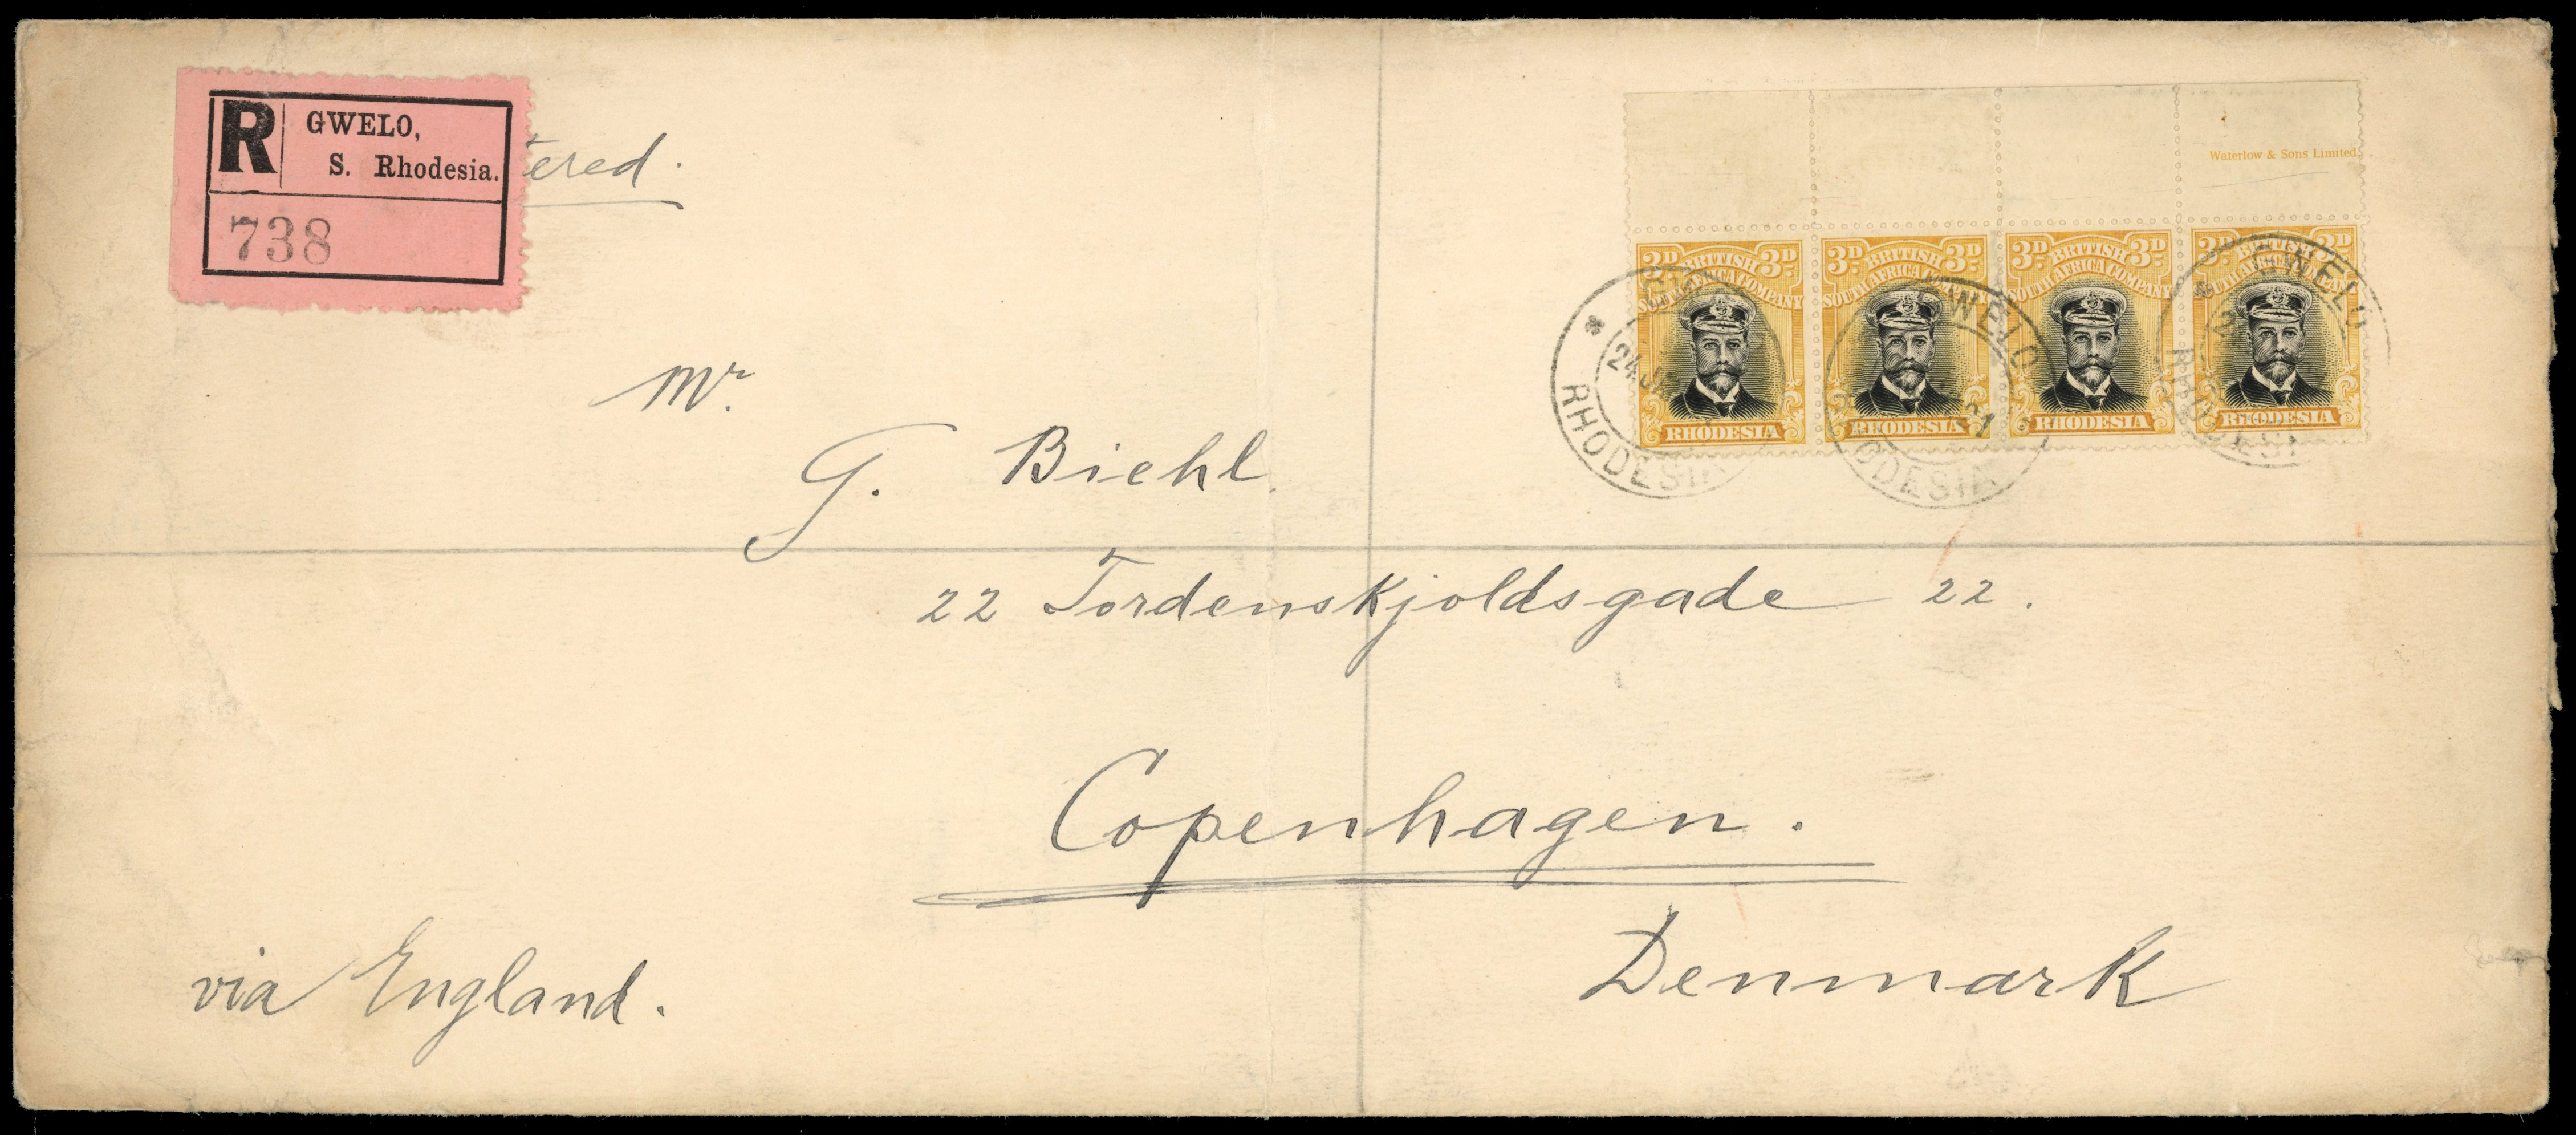 R GWELO,
S. Rhodesia.
738
tered.
Waterlow & Sons Limited.
3D BRITISH 3D
SOUTH AFRICA COMPANY
RHODESIA
3D BRITISH 3D
SOUTH AFRICA COMPANY
RHODESIA
3D BRITISH 3D
SOUTH AFRICA COMPANY
RHODESIA
3D BRITISH 3D
SOUTH AFRICA COMPANY
RHODESIA
24 JA
RHODESIA
GWELO
21
ODESIA
GWELO
RHODESIA
Mr.
G. Biehl.
22 Tordenskjoldsgade 22.
Copenhagen.
Denmark
via England.